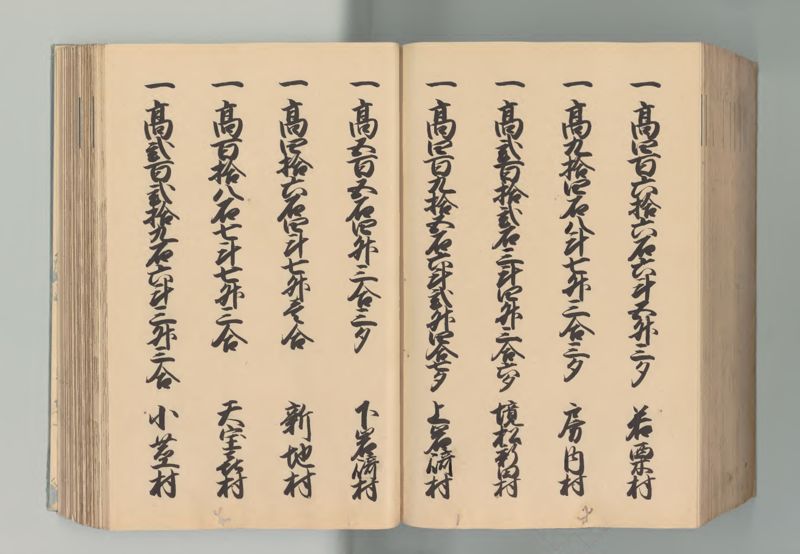 一 高四百六拾六石六斗五升三夕 若栗村
一 高九拾四石八斗七升二合三夕 房内村
一 高弐百拾弐石三斗四升二合六夕 境松新田村
一 高四百九拾五石六斗弐升四合七夕 上岩崎村
一 高五百五石四升三合三夕 下岩崎村
一 高四拾六石四斗七升壱合 新地村
一 高百拾八石七斗七升二合 天宝喜村
一 高弐百弐拾九石六斗二升三合 小茎村